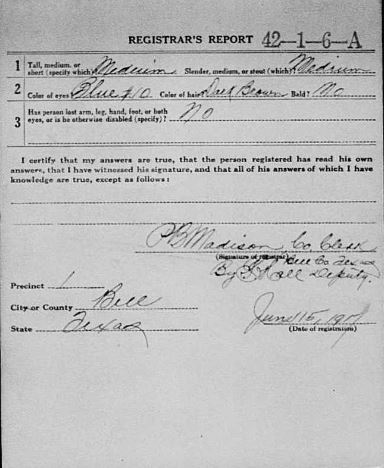 REGISTRAR'S REPORT 42-1-6-A
1 Tall, medium, or short (specify which)? Medium Slender, medium, or stout (which)? Medium
2 Color of eyes? Blue Color of hair? Dark Brown Bald? No
3 Has person lost arm, leg, hand, foot, or both eyes, or is he otherwise disabled (specify)? No
I certify that my answers are true, that the person registered has read his own
answers, that I have witnessed his signature, and that all of his answers of which I have
knowledge are true, except as follows:
P B Madison Co. Clerk
(Signature of registrar) Bell Co Texas
By Hall Deputy.
Precinct 1
City or County Bell
State Texas
June 15, 1917
(Date of registration)